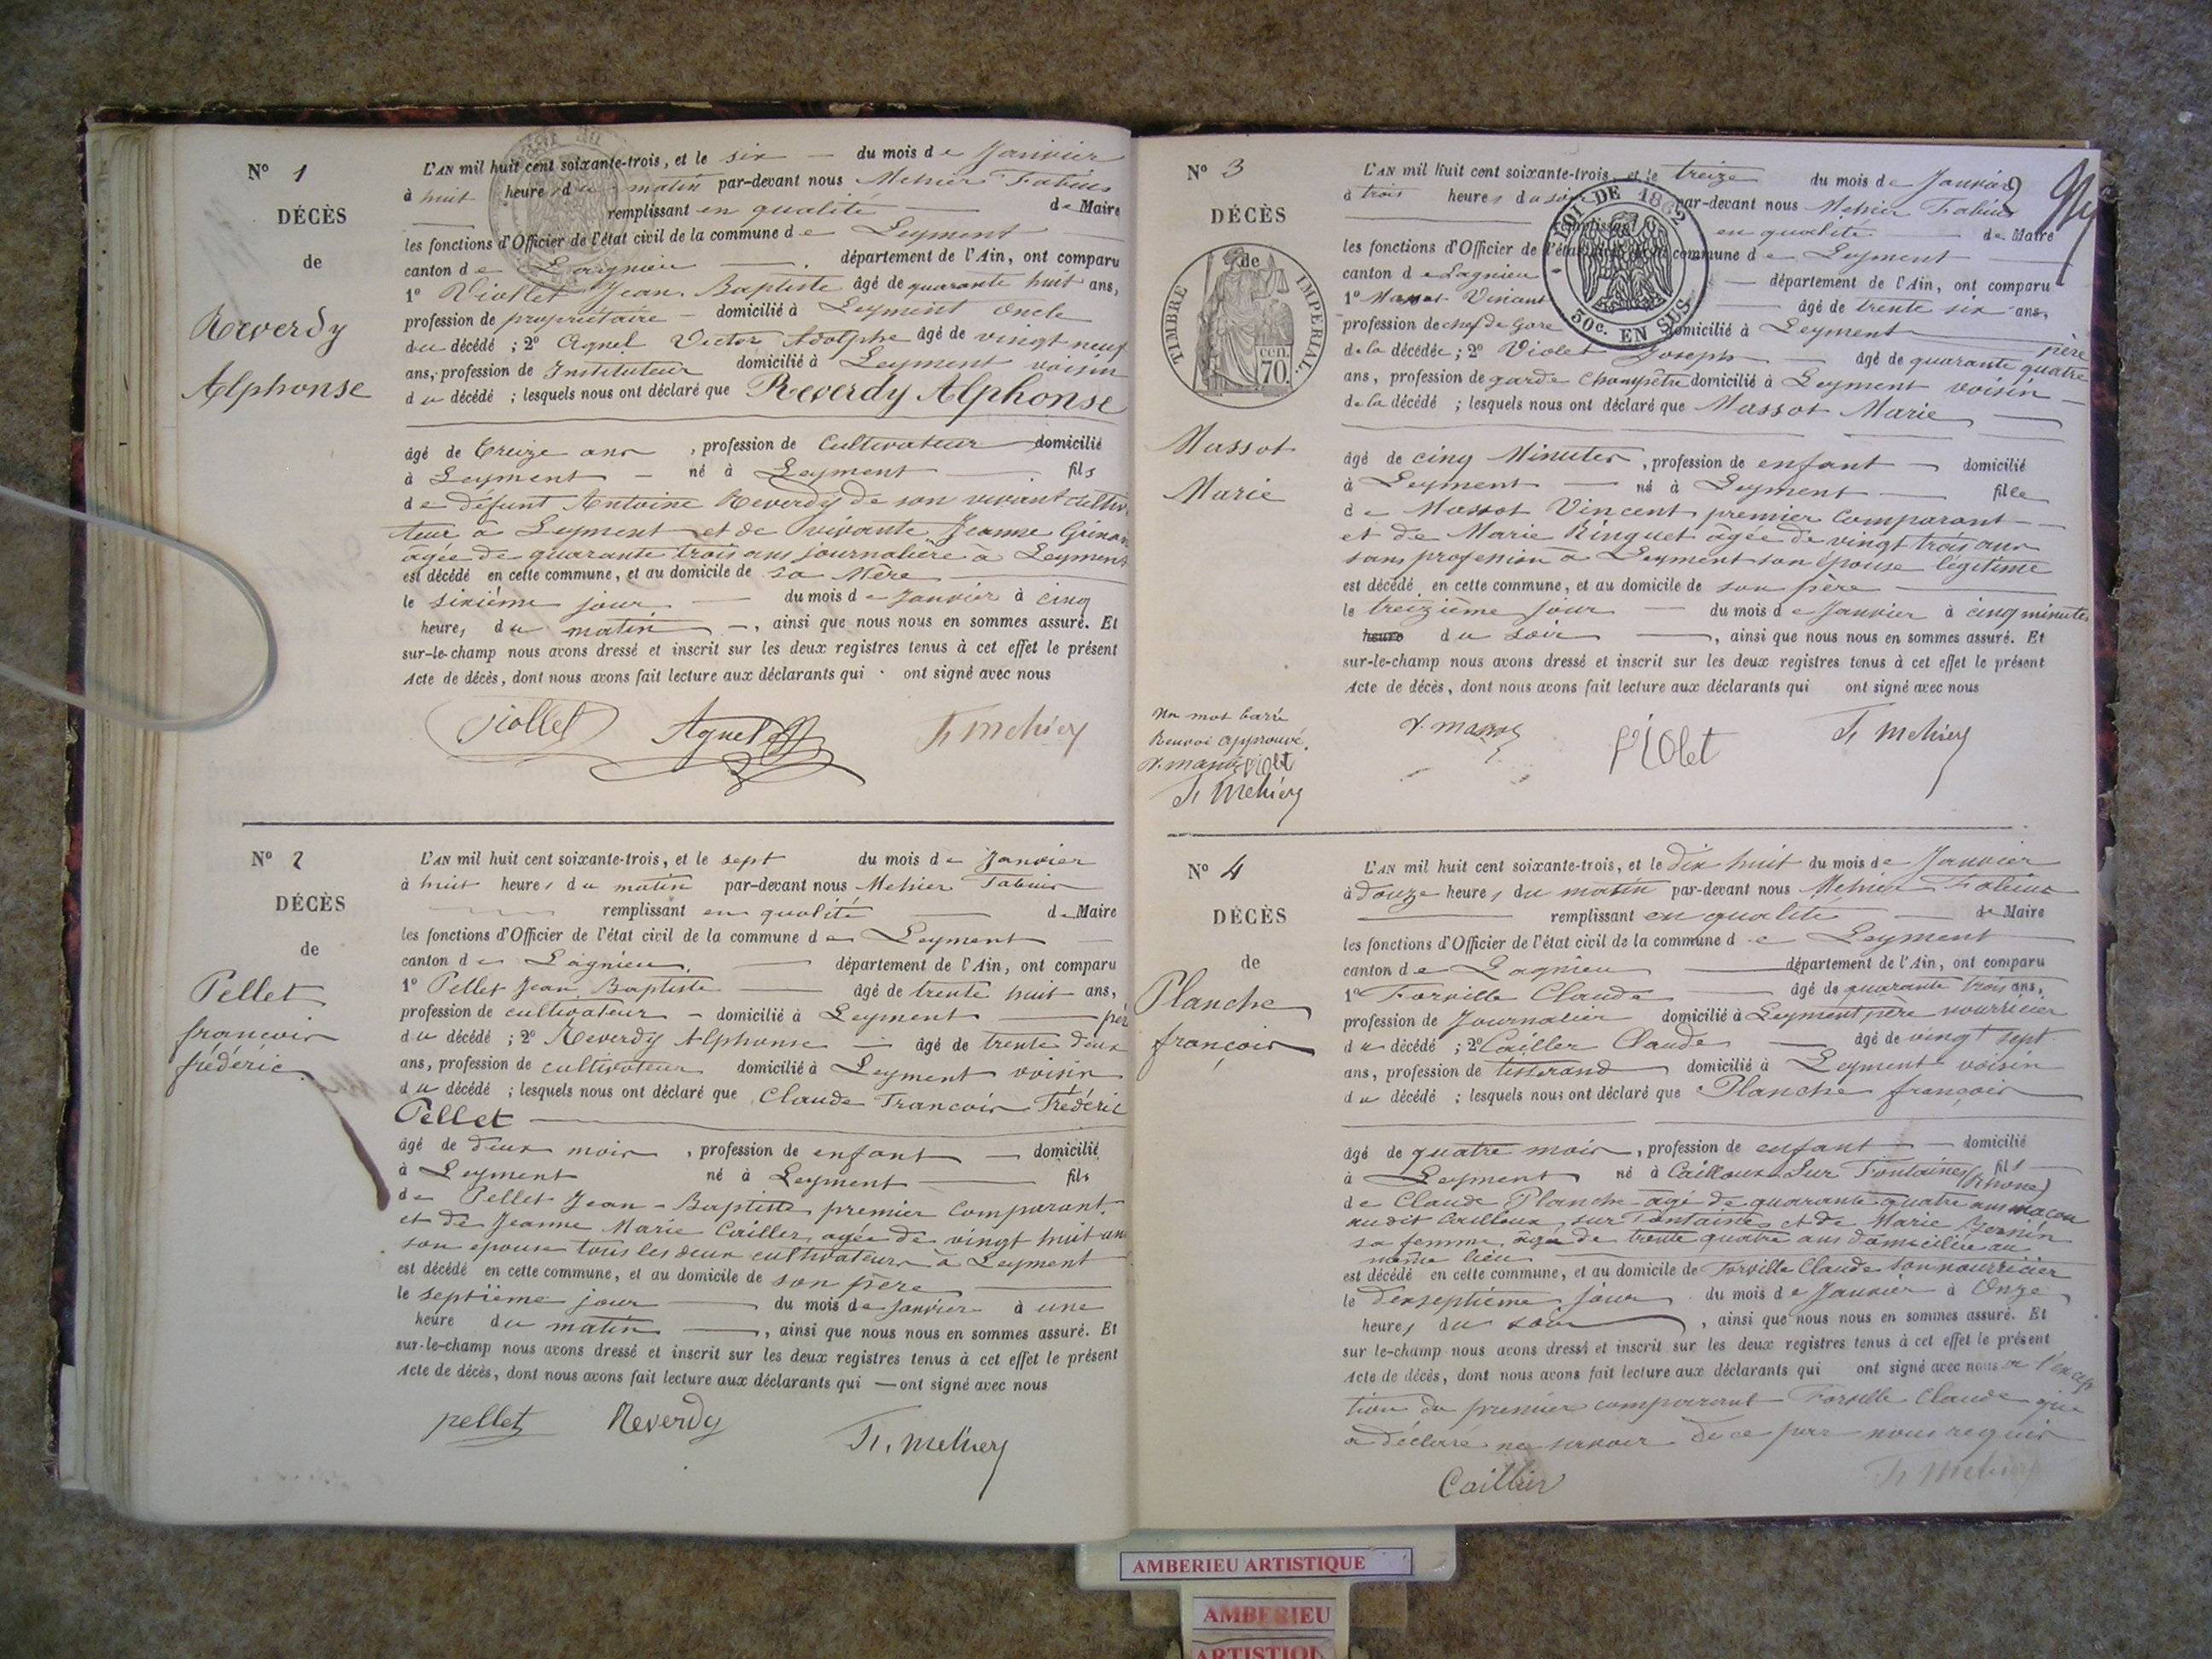 N° 1
DÉCÈS
de
Reverdy
Alphonse
L'AN mil huit cent soixante-trois, et le six du mois de Janvier
à huit heures du matin par-devant nous Mehier Fabius
remplissant en qualité de Maire
les fonctions d'Officier de l'état civil de la commune de Leyment
canton de Lagnieu département de l'Ain, ont comparu
1° Viollet Jean-Baptiste âgé de quarante huit ans,
profession de propriétaire domicilié à Leyment oncle
du décédé ; 2° Agnel Victor Adolphe âgé de vingt neuf
ans, profession de Instituteur domicilié à Leyment voisin
du décédé ; lesquels nous ont déclaré que Reverdy Alphonse
âgé de treize ans, profession de Cultivateur domicilié
à Leyment né à Leyment fils
de défunt Antoine Reverdy de son vivant cultiva
teur à Leyment et de vivante Jeanne
agée de quarante trois ans journalière à Leyment
est décédé en cette commune, et au domicile de sa Mère
le sixième jour du mois de Janvier à cinq
heures du matin, ainsi que nous nous en sommes assuré. Et
sur-le-champ nous avons dressé et inscrit sur les deux registres tenus à cet effet le présent
Acte de décès, dont nous avons fait lecture aux déclarants qui ont signé avec nous
Viollet Agnel F. Mehier
N° 2
DÉCÈS
de
Pellet
françois
frédéric
L'AN mil huit cent soixante-trois, et le sept du mois de Janvier
à huit heures du matin par-devant nous Mehier Fabius
remplissant en qualité de Maire
les fonctions d'Officier de l'état civil de la commune de Leyment
canton de Lagnieu département de l'Ain, ont comparu
1° Pellet Jean Baptiste âgé de trente huit ans,
profession de cultivateur domicilié à Leyment père
du décédé ; 2° Reverdy Alphonse âgé de trente deux
ans, profession de cultivateur domicilié à Leyment voisin
du décédé ; lesquels nous ont déclaré que Claude François Frédéric
Pellet
âgé de deux mois, profession de enfant domicilié
à Leyment né à Leyment fils
de Pellet Jean-Baptiste premier comparant
et de Jeanne Marie Cailler, agée de vingt huit ans
son épouse tous les deux cultivateurs à Leyment
est décédé en cette commune, et au domicile de son père
le septième jour du mois de Janvier à une
heure du matin, ainsi que nous nous en sommes assuré. Et
sur-le-champ nous avons dressé et inscrit sur les deux registres tenus à cet effet le présent
Acte de décès, dont nous avons fait lecture aux déclarants qui — ont signé avec nous
pellet Reverdy F. Mehier
N° 3
DÉCÈS
de
TIMBRE IMPERIAL
cen. 70.
Massot
Marie
LOI DE 1862
50c. EN SUS
L'AN mil huit cent soixante-trois, et le treize du mois de Janvier
à trois heures du soir par-devant nous Mehier Fabius
remplissant en qualité de Maire
les fonctions d'Officier de l'état civil de la commune de Leyment
canton de Lagnieu département de l'Ain, ont comparu
1° Massot Vincent âgé de trente six ans,
profession de chef de Gare domicilié à Leyment père
de la décédée ; 2° Violet Joseph âgé de quarante quatre
ans, profession de garde Champêtre domicilié à Leyment voisin
de la décédé ; lesquels nous ont déclaré que Massot Marie
âgé de cinq Minutes, profession de enfant domicilié
à Leyment né à Leyment fille
de Massot Vincent premier comparant
et de Marie Ringuet âgée de vingt trois ans
sans profession à Leyment son épouse légitime
est décédé en cette commune, et au domicile de son père
le treizième jour du mois de Janvier à cinq minutes
heure du soir, ainsi que nous nous en sommes assuré. Et
sur-le-champ nous avons dressé et inscrit sur les deux registres tenus à cet effet le présent
Acte de décès, dont nous avons fait lecture aux déclarants qui ont signé avec nous
Un mot barré
Renvoi approuvé.
V. Massot Violet
F. Mehier
V. Massot Violet F. Mehier
N° 4
DÉCÈS
de
Planche
françois
L'AN mil huit cent soixante-trois, et le dix huit du mois de Janvier
à Douze heures du matin par-devant nous Mehier Fabius
remplissant en qualité de Maire
les fonctions d'Officier de l'état civil de la commune de Leyment
canton de Lagnieu département de l'Ain, ont comparu
1° Forville Claude âgé de quarante trois ans,
profession de Journalier domicilié à Leyment père nourricier
du décédé ; 2° Cailler Claude âgé de vingt sept
ans, profession de tisserand domicilié à Leyment voisin
du décédé ; lesquels nous ont déclaré que Planche françois
âgé de quatre mois, profession de enfant domicilié
à Leyment né à Cailloux Sur Fontaines (Rhône) fils
de Claude Planche agé de quarante quatre ans maçon
audit Cailloux sur Fontaines et de Marie
sa femme, agée de trente quatre ans domiciliée au
même lieu
est décédé en cette commune, et au domicile de Forville Claude son nourricier
le dixseptième jour du mois de Janvier à Onze
heures du soir, ainsi que nous nous en sommes assuré. Et
sur-le-champ nous avons dressé et inscrit sur les deux registres tenus à cet effet le présent
Acte de décès, dont nous avons fait lecture aux déclarants qui ont signé avec nous a l'excep
tion du premier comparant Forville Claude qui
a déclaré ne savoir de ce par nous requis
Caillier F. Mehier
AMBERIEU ARTISTIQUE
AMBERIEU
ARTISTIQUE